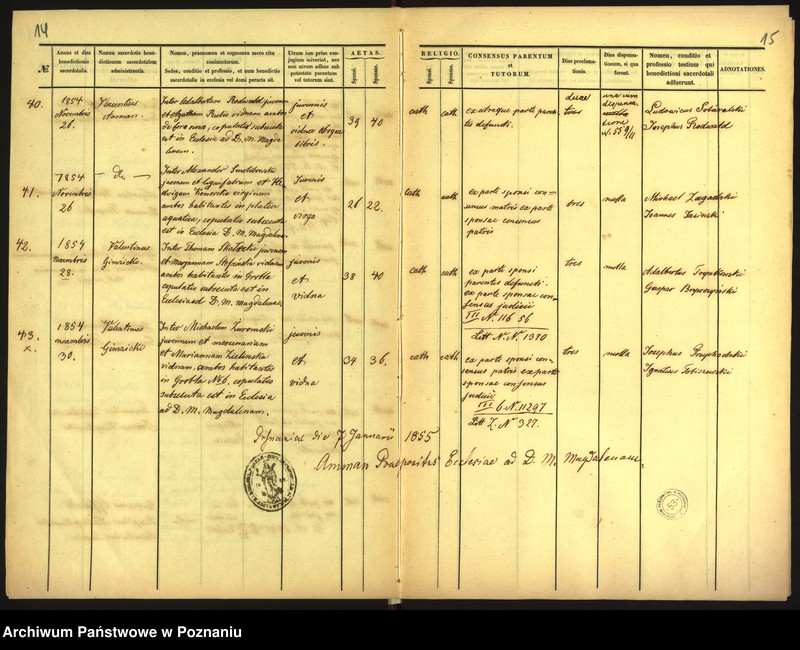 14
15
№.
Annus et dies benedictionis sacerdotalis.
Nomen sacerdotis benedictionem sacerdotalem administrantis.
Nomen, praenomen et cognomen sacro ritu conjunctorum.
Sedes, conditio et professio, et num benedictio sacerdotalis in ecclesia vel domi peracta sit.
Utrum jam prius conjugium iniverint, nec non utrum adhuc sub potestate parentum vel tutorum sint.
AETAS.
Sponsi.
Sponsae.
RELIGIO.
Sponsi.
Sponsae.
CONSENSUS PARENTUM
et
TUTORUM.
Dies proclamationis.
Dies dispensationis, si qua forent.
Nomen, conditio et professio testium qui benedictioni sacerdotali adfuerunt.
ADNOTATIONES.
40.
1854
Novembris
26.
Valentinus
Amman.
Inter Adalbertum Redwald juvenem
et Agatham viduam ambo
de foro novo, copulatio subsecuta
est in Ecclesia ad D. M. Magda
lenam.
juvenis
et
vidua absque
liberis.
39
40
cath
cath
ex utraque parte paren
tes defuncti.
duae
tres
una cum
dispensa
tione
Ludovicus
Josephus Redwald
41.
1854
Novembris
26
— do —
Inter Alexandrum
juvenem et et He
dvigem virginem
ambo habitantes in platea
aquatica, copulatio subsecuta
est in Ecclesia D. M. Magdalen.
Juvenis
et
virgo
26
22.
cath
cath
ex parte sponsi con-
sensus matris ex parte
sponsae consensus
patris
tres
nulla
Michael Zagadzki
Joannes Jasinski
42.
1854
novembris
28.
Valentinus
Inter Thomam juvenem
et Mariannam viduam
ambo habitantes in Grobla
copulatio subsecuta est in
Ecclesia ad D. M. Magdalenae.
juvenis
et
vidua
38
40
cath
cath
ex parte sponsi
parentes defuncti.
ex parte sponsae con
sensus judicii
III N. 116 56
Litt N. N. 1390
tres
nulla
Adalbertus
Gaspar
43.
x.
1854
novembris
30.
Valentinus
Inter Michaelem Zuromski
juvenem et mercenarium
et Mariannam Zielinska
viduam, ambos habitantes
in Grobla No 6, copulatio
subsecuta est in Ecclesia
ad D. M. Magdalenam.
juvenis
et
vidua
34
36.
cath
cath
ex parte sponsi con-
sensus patris ex parte
sponsae consensus
judicii
III 6 N. 11297
Litt Z. N 327.
tres
nulla
Josephus
Ignatius
Posnaniae die 7 Januarii 1855
Amman Praepositus Ecclesiae ad D. M. Magdalenam.
Archiwum Państwowe w Poznaniu